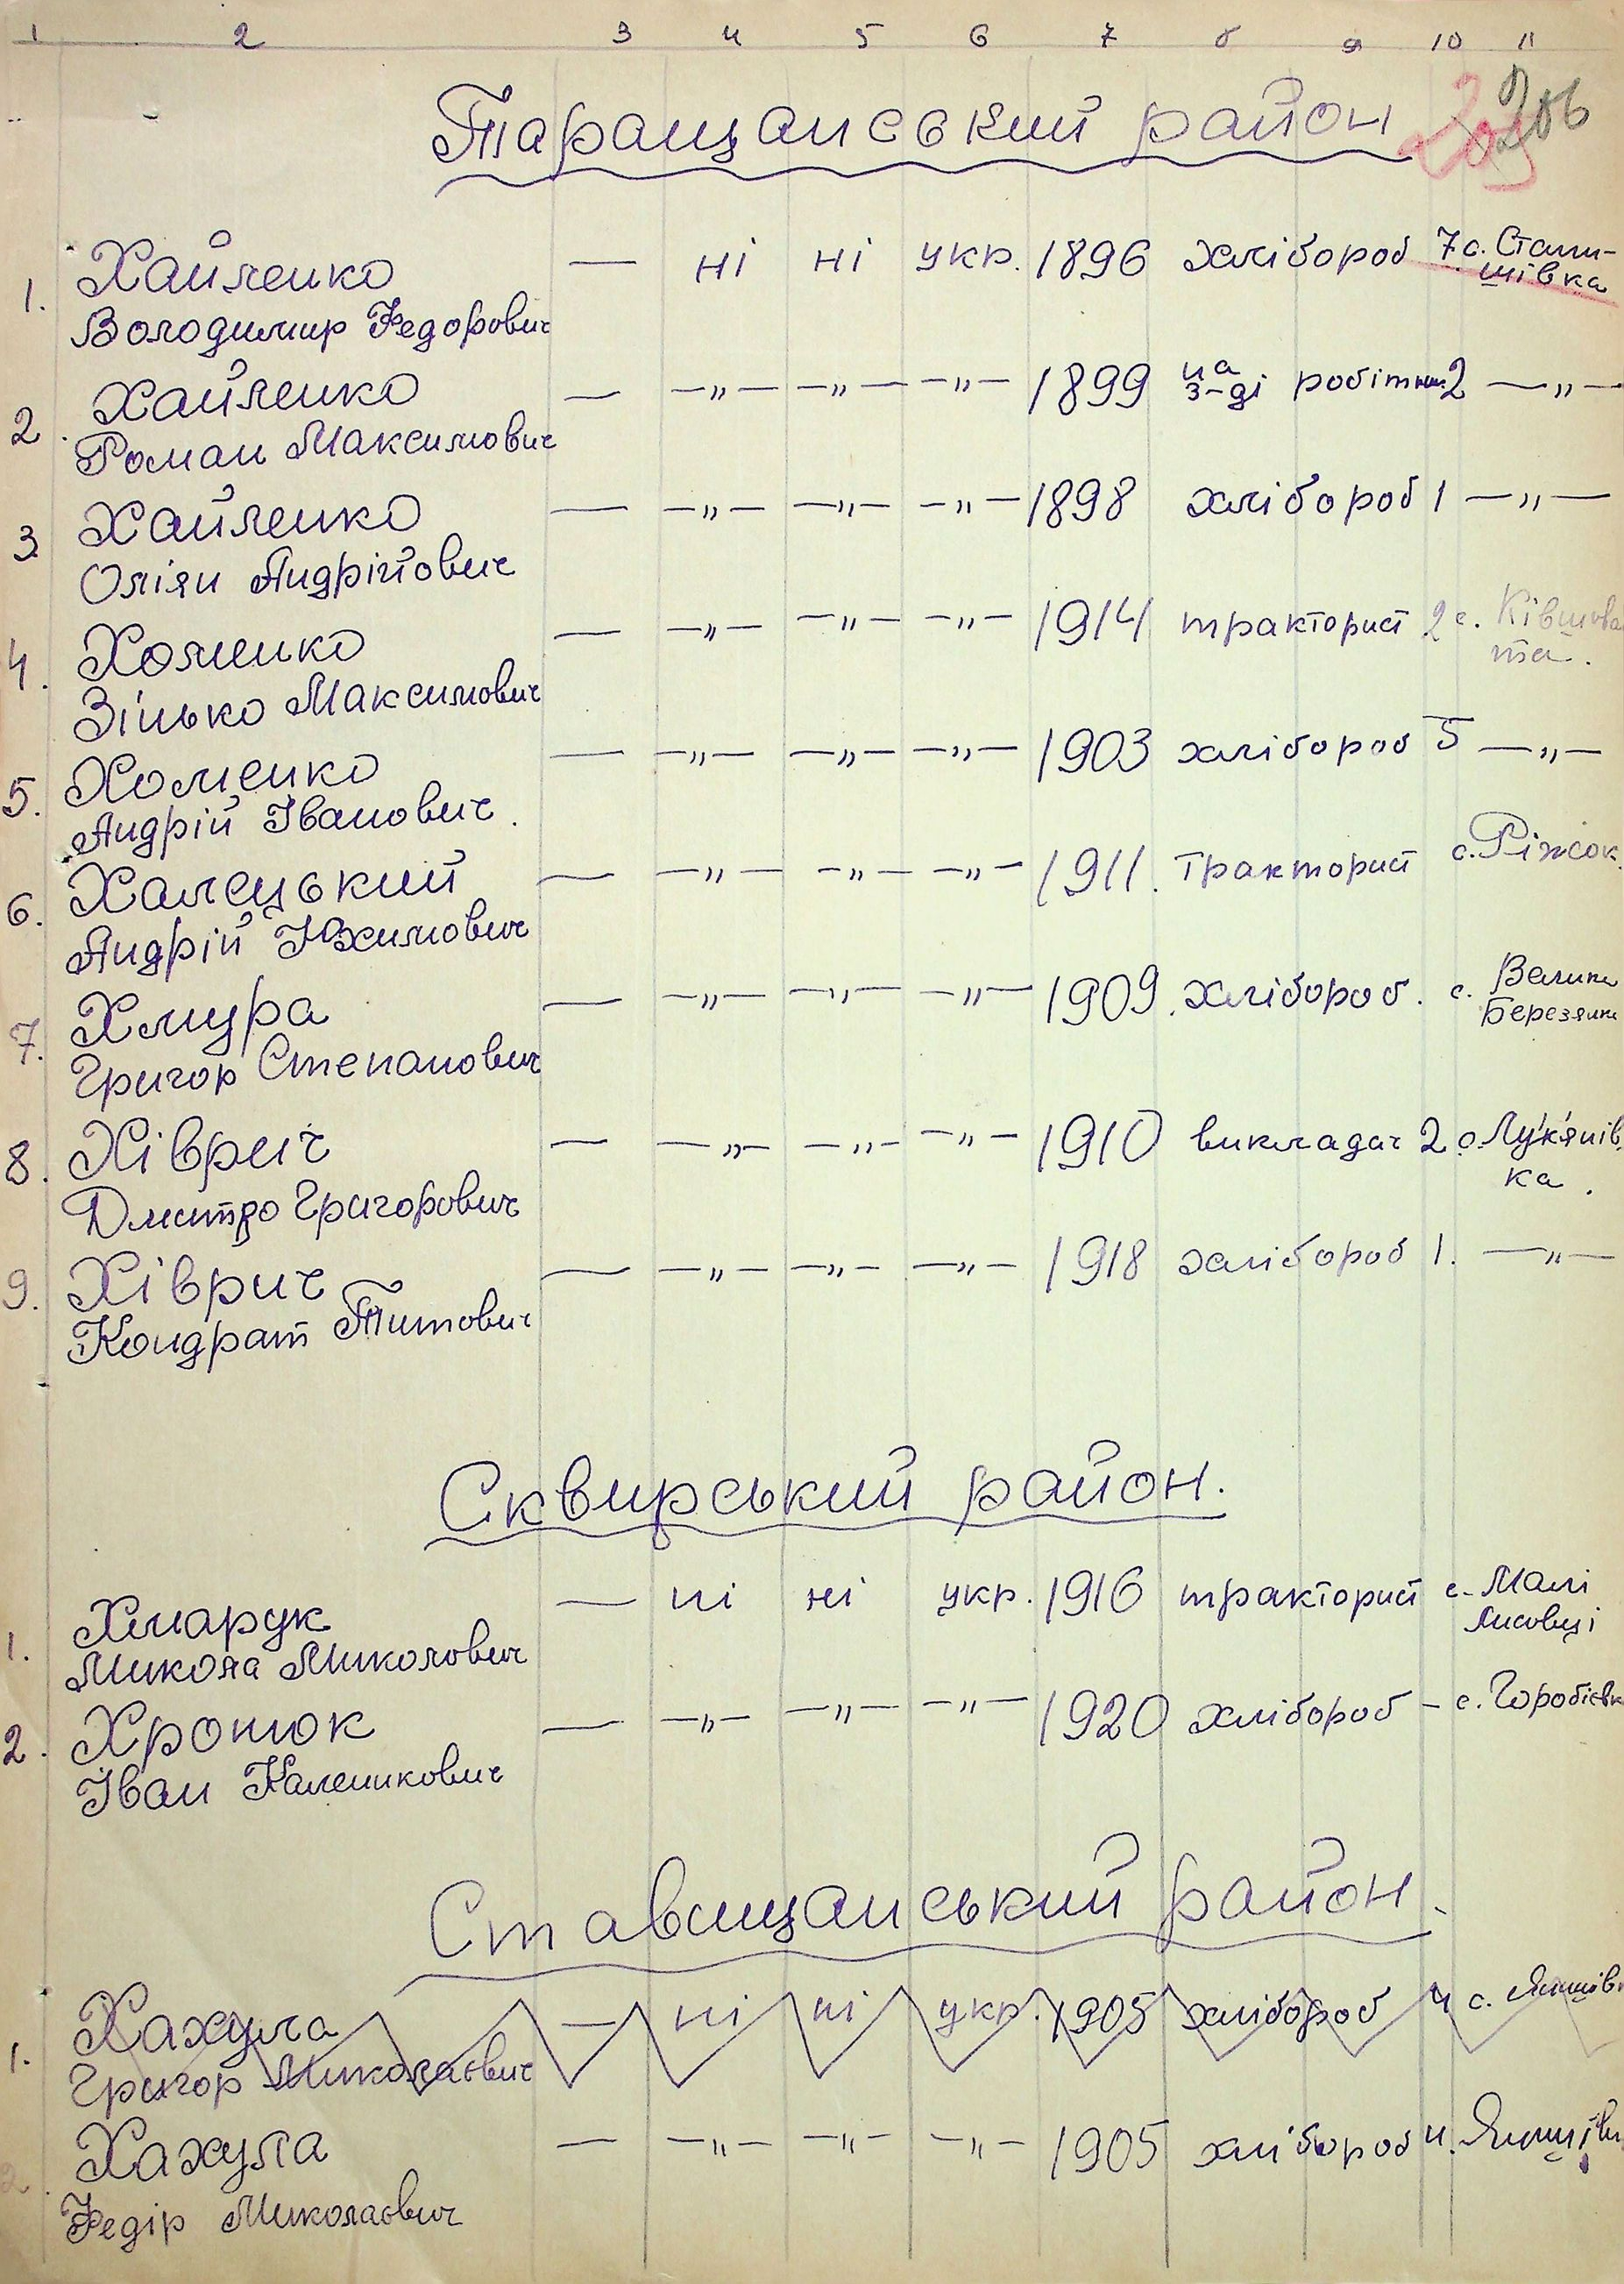 1 2 3 4 5 6 7 8 9 10 11
206
Таращанський район
1. Хайленко — ні ні укр. 1896 хлібороб 7 с. Стани-
шівка
Володимир Федорович
2. Хайленко — —„— —„— —„— 1899 на з-ді робітник 2 —„—
Роман Максимович
3. Хайленко — —„— —„— —„— 1898 хлібороб 1 —„—
Оліян Андрійович
4. Хоменко — —„— —„— —„— 1914 тракторист 2 с. Ківшова
та.
Зінько Максимович
5. Хоменко — —„— —„— —„— 1903 хлібороб 5 —„—
Андрій Іванович.
6. Халецький — —„— —„— —„— 1911. тракторист с. Ріжок.
Андрій Юхимович
7. Хмура — —„— —„— —„— 1909. хлібороб. с. Велика
Березянка
Григор Степанович
8. Хіврич — —„— —„— —„— 1910 викладач 2 с. Лук'янів
ка.
Дмитро Григорович
9. Хіврич — —„— —„— —„— 1918 хлібороб 1. —„—
Кондрат Титович
Сквирський район.
1. Хмарук — ні ні укр. 1916 тракторист с. Малі
Лисовці
Микола Миколович
2. Хронюк — —„— —„— —„— 1920 хлібороб — с. Горобіївк
Іван Каленикович
Ставищанський район.
1. Хахула — ні ні укр. 1905 хлібороб 4 с.
Григор Миколаєвич
2. Хахула — —„— —„— —„— 1905 хлібороб 4.
Федір Миколаєвич